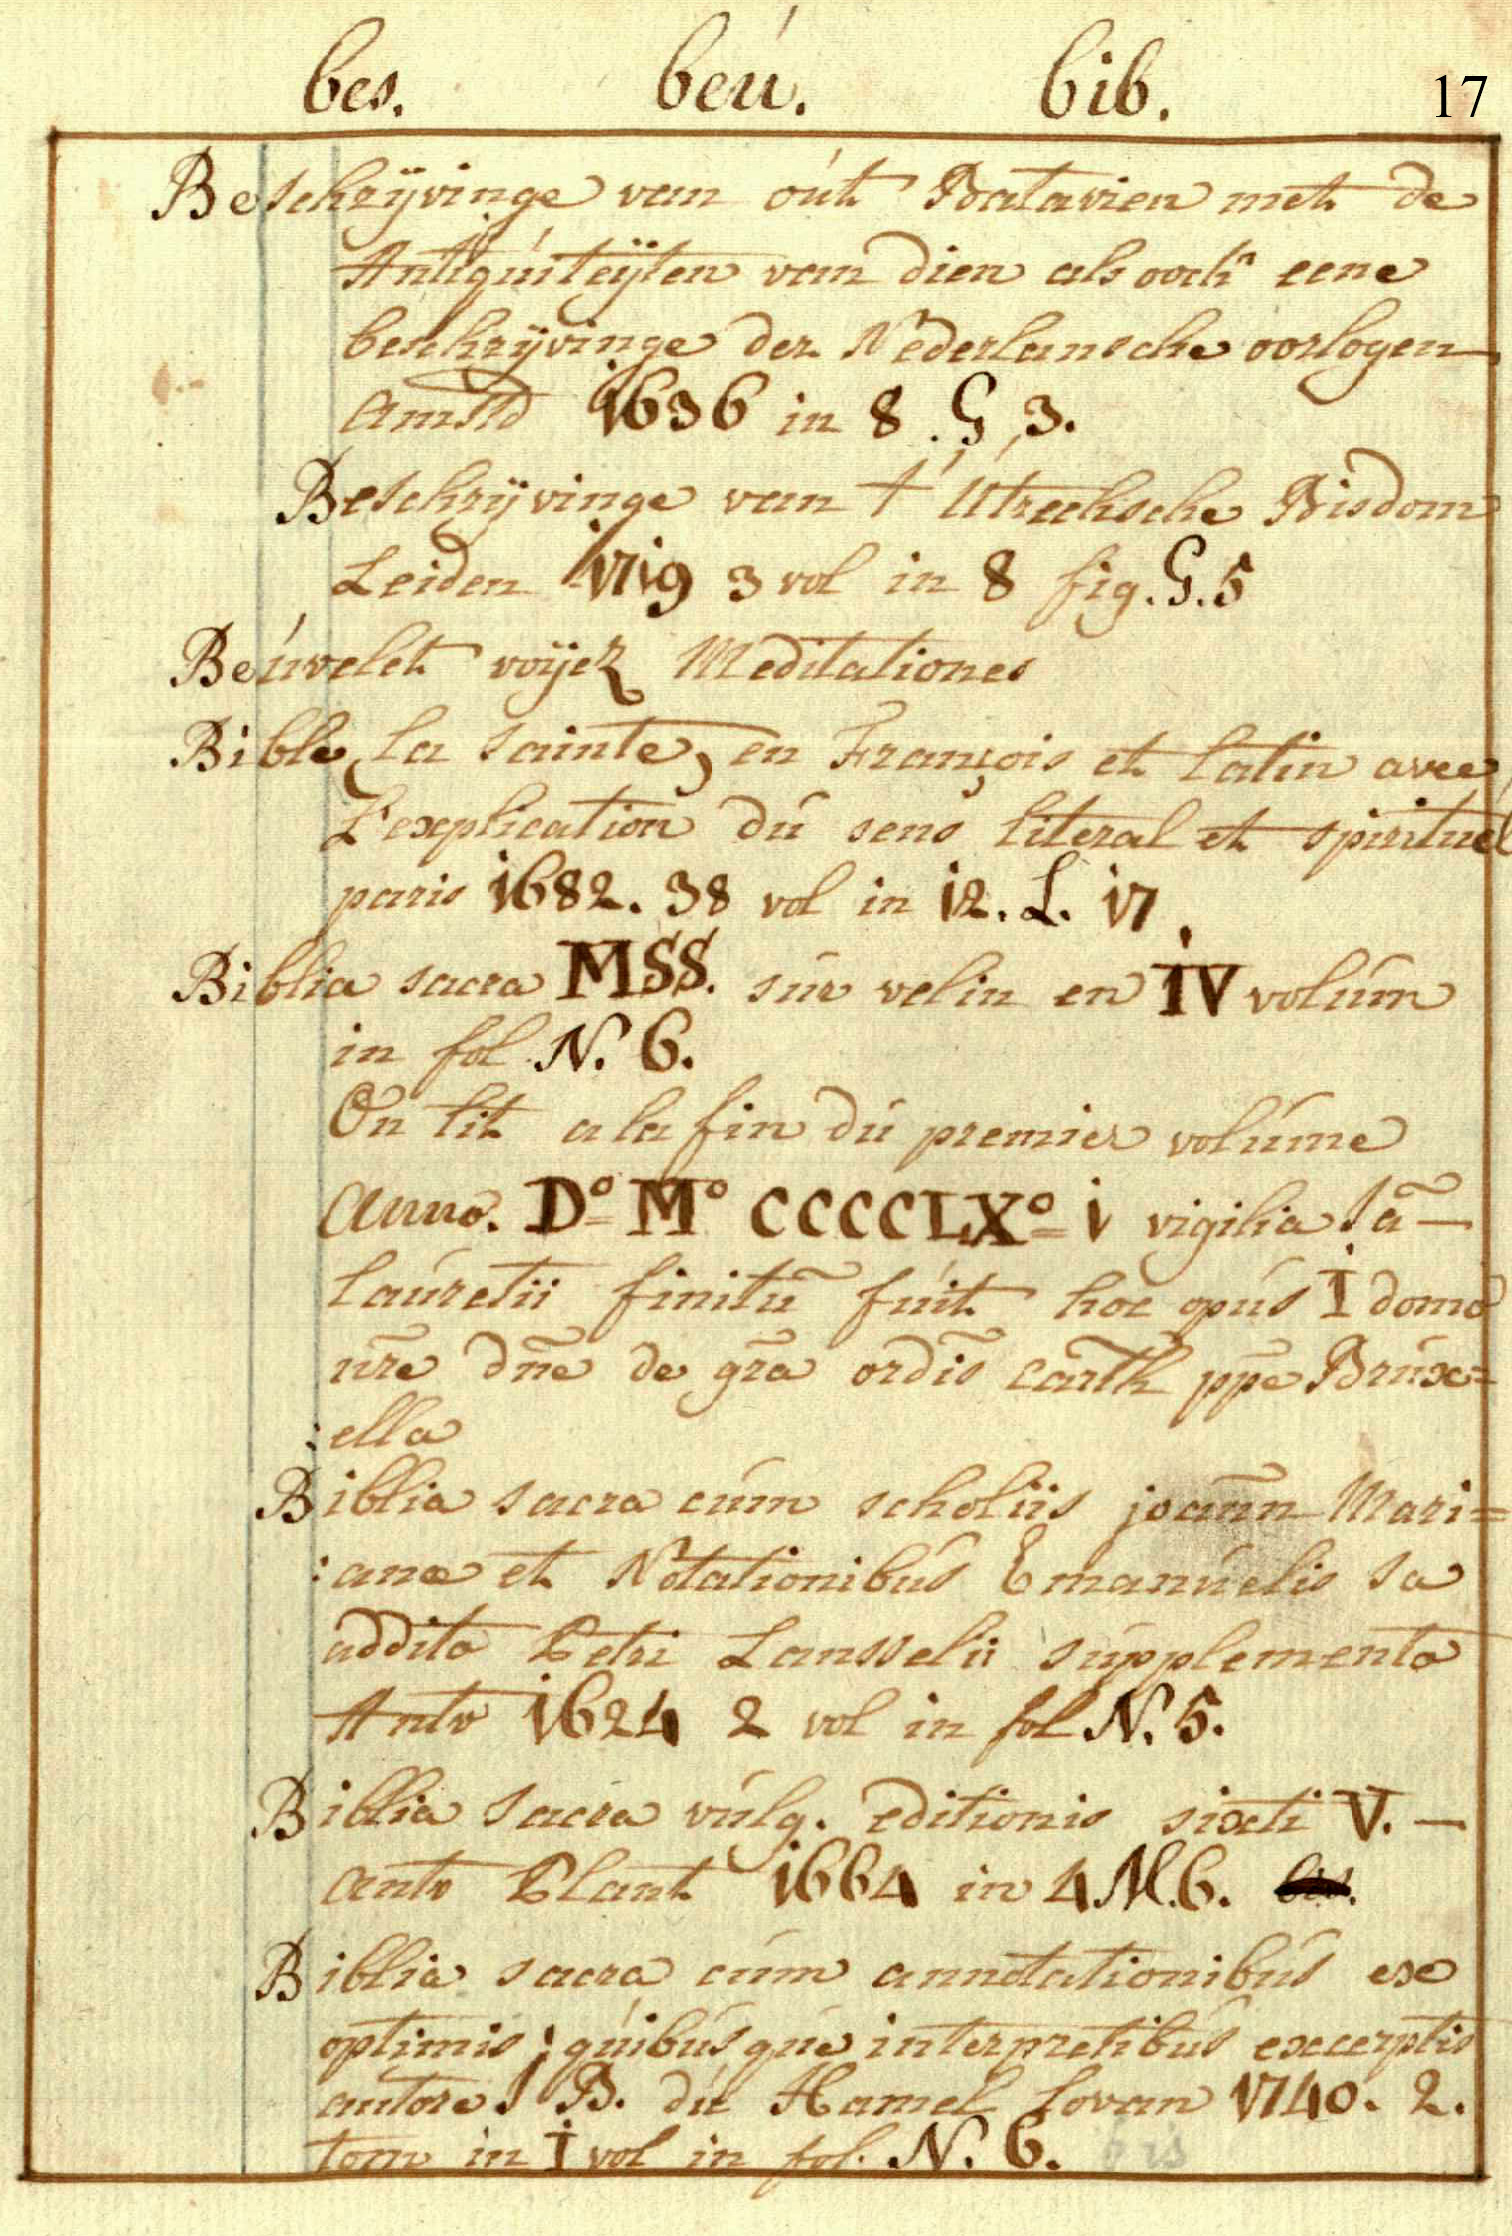 bes. beú. bib. 17
Beschrÿvinge van oút Batavien met de
Antiqúiteÿten van dien als ooch eene
beschrÿvinge der Nederlansche oorlogen
Amstd 1636 in 8. G 3.
Beschrÿvinge van t' Utrechsche Bisdom
Leiden 1719 3 vol in 8 fig. G. 5
Beúvelet voÿez Meditationes
Bible, la sainte, en François et latin avec
L'explication dú sens literal et spirituel
paris 1682. 38 vol in 12. L. 17.
Biblia sacra MSS. súr velin en IV volúm
in fol N. 6.
On lit a la fin dú premier volúme
Anno. D° M° CCCCLX° i vigilia Sã —
laúretii finitũ fúit hoc opús I domo
nr̃e dñe de gr̃a ordis̃ carth̃ pp̃e Brúx=
:ella
Biblia sacra cúm scholiis joañn Mari=
:anæ et Notationibús Emanúelis sa
addito Petri Lansselii súpplemento
Antv 1624 2 vol in fol N. 5.
Biblia sacra vúlg. editionis sixti V. —
antv Plant 1664 in 4 M. 6.
Biblia sacra cúm annotationibús ex
optimis; qúibúsqúe interpretibús excerptis
autore J B. dú Hamel lovan 1740. 2.
tom in I vol in fol. N. 6. bis